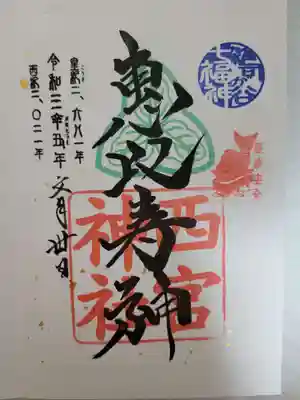 七福神
恵比寿神
西宮
神社
皇紀二、六八一年
令和三辛丑年 文月
西暦二、〇二一年